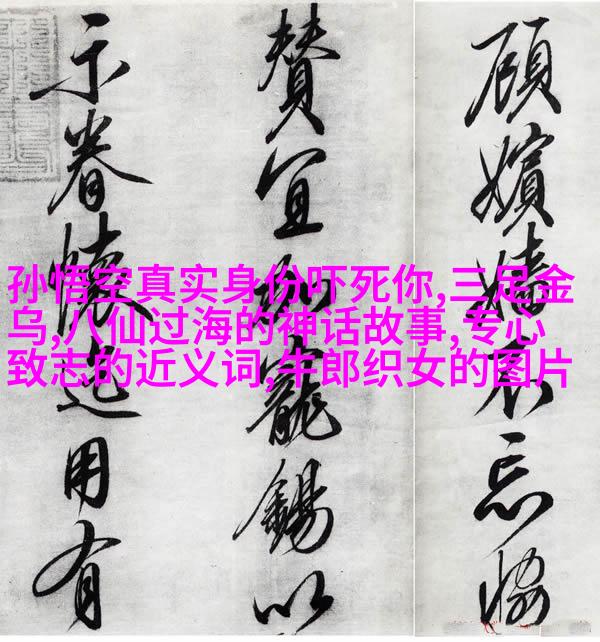 孙悟空真实身份吓死你,三足金
乌,八仙过海的神话故事,专心
致志的近义词,牛郎织女的图片
顧嬪嬙不忘協
贊宜加寵錫以
示眷懷迄用有